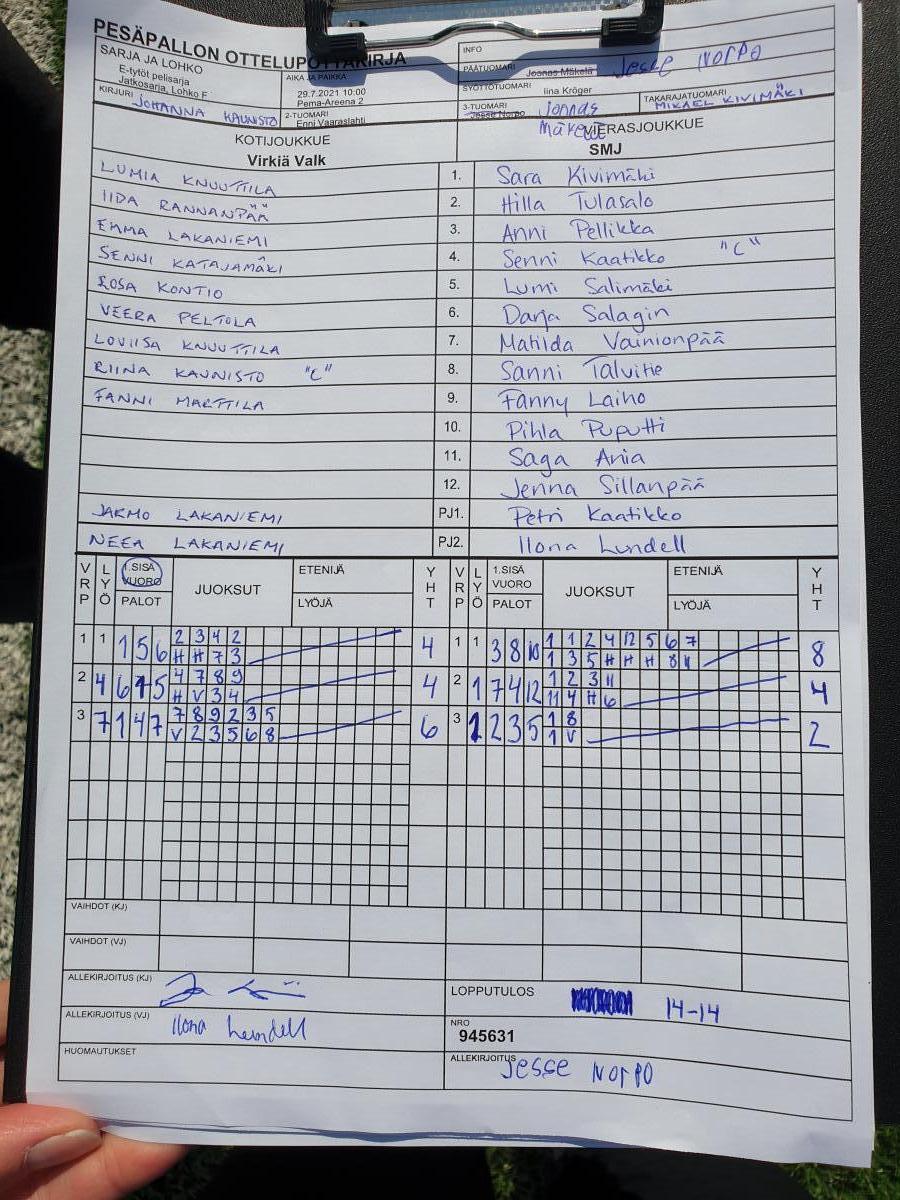 PESÄPALLON OTTELUPÖYTÄKIRJA
SARJA JA LOHKO
E-tytöt pelisarja
Jatkosarja, Lohko F
AIKA JA PAIKKA
29.7.2021 10:00
Pema-Areena 2
INFO
PÄÄTUOMARI Joonas Mäkelä Jesse Norpo
SYÖTTÖTUOMARI Iina Kröger
KIRJURI JOHANNA KAUNISTO
2-TUOMARI Enni Vaaraslahti
3-TUOMARI Jesse Norpo Joonas Mäkelä
TAKARAJATUOMARI MIKAEL KIVIMÄKI
KOTIJOUKKUE
Virkiä Valk
VIERASJOUKKUE
SMJ
LUMIA KNUUTTILA 1. Sara Kivimäki
IIDA RANNANPÄÄ 2. Hilla Tulasalo
EMMA LAKANIEMI 3. Anni Pellikka
SENNI KATAJAMÄKI 4. Senni Kaatikko "C"
ROSA KONTIO 5. Lumi Salimäki
VEERA PELTOLA 6. Darja Salagin
LOVIISA KNUUTTILA 7. Matilda Vainionpää
RIINA KAUNISTO "C" 8. Sanni Talvitie
FANNI MARTTILA 9. Fanny Laiho
10. Pihla Puputti
11. Saga Ania
12. Jenna Sillanpää
JARMO LAKANIEMI PJ1. Petri Kaatikko
NEEA LAKANIEMI PJ2. Ilona Lundell
VRP LYÖ 1.SISÄ VUORO PALOT JUOKSUT ETENIJÄ LYÖJÄ YHT VRP LYÖ 1.SISÄ VUORO PALOT JUOKSUT ETENIJÄ LYÖJÄ YHT
1 1 1 5 6 2 3 4 2 4 1 1 3 8 10 1 1 2 4 12 5 6 7 8
H H 7 3 1 3 5 H H H 8 11
2 4 6 1 5 4 7 8 9 4 2 1 7 4 12 1 2 3 11 4
H V 3 4 11 4 H 6
3 7 1 4 7 7 8 9 2 3 5 6 3 1 2 3 5 1 8 2
V 2 3 5 6 8 1 V
VAIHDOT (KJ)
VAIHDOT (VJ)
ALLEKIRJOITUS (KJ)
LOPPUTULOS 14-14
ALLEKIRJOITUS (VJ) Ilona Lundell
NRO
945631
HUOMAUTUKSET
ALLEKIRJOITUS Jesse Norpo